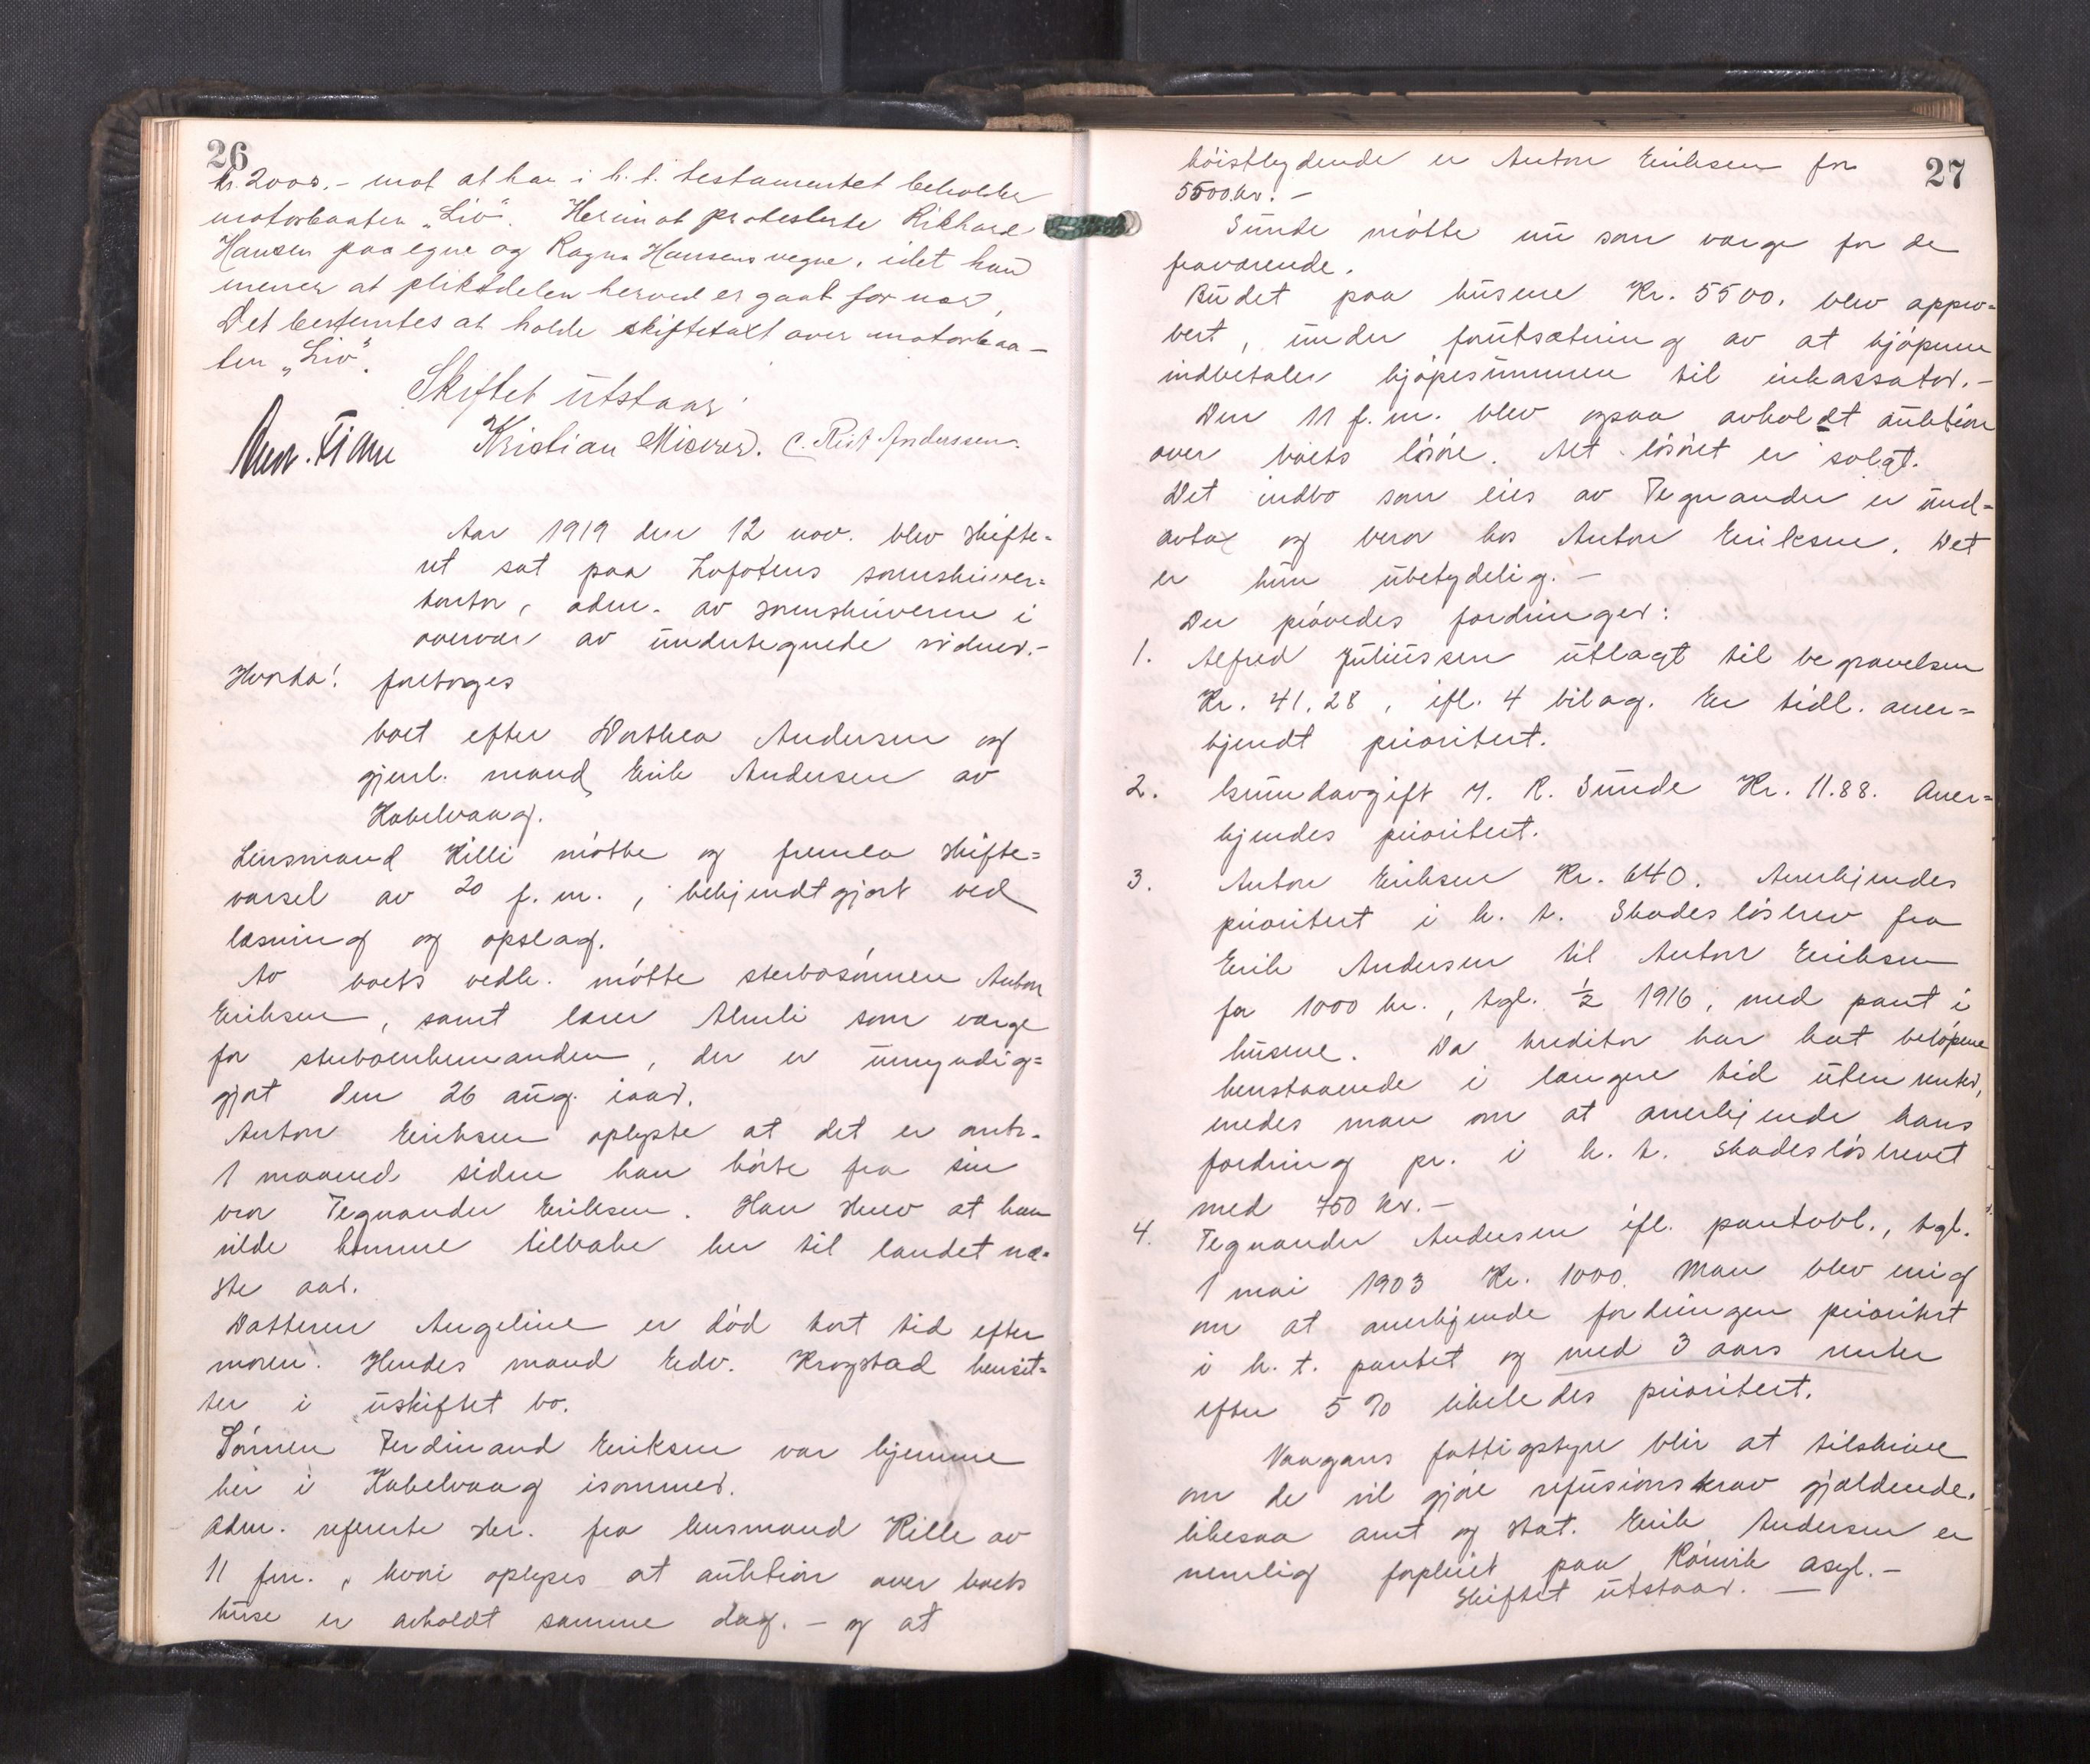 26
kr. 2000.- mot at han i h. t. testamentet beholder
motorbaaten „Liv". Herimot protesterte Rikhard
Hansen paa egne og Ragna Hansens vegne, idet han
mener at pliktdelen herved er gaat for nær,
Det bestemtes at holde skiftetakt over motorbaa-
ten „Liv".
Skiftet utstaar.
Kristian C. Anderssen.
Aar 1919 den 12 nov. blev skifte-
ret sat paa Lofotens sorenskriver-
kontor, adm. av sorenskriveren i
overvær av undertegnede vidner.-
Hvorda! foretoges
boet efter Dorthea Andersen og
gjenl. mand Erik Andersen av
Kabelvaag.
Lensmand Killi møtte og fremla skifte-
varsel av 20 f. m., bekjendtgjort ved
læsning og opslag.
Av boets vedk. møtte sterbosønnen Anton
Eriksen, samt lærer som værge
for sterboenkemanden, der er umyndig-
gjort den 26 aug. iaar.
Anton Eriksen oplyste at det er omtr.
1 maaned siden han hørte fra sin
bror Tegnander Eriksen. Han skrev at han
vilde komme tilbake her til landet næ-
ste aar.
Datteren Angeline er død kort tid efter
moren. Hendes mand Edv. Krogstad hensit-
ter i uskiftet bo.
Sønnen Ferdinand Eriksen var hjemme
her i Kabelvaag isommer.
Adm. refererte skr. fra lensmand Kille av
11 f.m., hvori oplyses at auktion over boets
huse er avholdt samme dag. - og at
27
høistbydende er Anton Eriksen for
5500 kr. -
Sunde møtte nu som værge for de
fraværende.
Budet paa husene Kr. 5500. blev appro-
bert, under forutsætning av at kjøperen
indbetaler kjøpesummen til inkassator.-
Den 11 f. m. blev ogsaa avholdt auktion
over boets løsøre. Alt løsøret er solgt.
Det indbo som eies av Tegnander er und-
avtat og beror hos Anton Eriksen. Det
er kun ubetydelig. -
Der prøvedes fordringer:
1. Alfred Juliussen utlagt til begravelsen
Kr. 41.28, ifl. 4 bilag. Er tidl. aner-
kjendt prioritert.
2. Grundavgift M. R. Sunde Kr. 11.88. Aner-
kjendes prioritert.
3. Anton Eriksen Kr. 640. Anerkjendes
prioritert i h. t. Skadesløsbrev fra
Erik Andersen til Anton Eriksen
for 1000 kr., tgl. ½ 1916, med pant i
husene. Da kreditor har hat beløpene
henstaaende i længere tid uten renter,
enedes man om at anerkjende hans
fordring pr. i h. t. Skadesløsbrevet
med 750 kr. -
4. Tegnander Andersen ifl. pantobl., tgl.
1 mai 1903 Kr. 1000. Man blev enig
om at anerkjende fordringen prioritert
i h. t. pantet og med 3 aars renter
efter 5 % likeledes prioritert.
Vaagans fattigstyre blir at tilskrive
om de vil gjøre refusionskrav gjældende.
likesaa amt og stat. Erik Andersen er
nemlig forpleiet paa Rønvik asyl.-
Skiftet utstaar. —